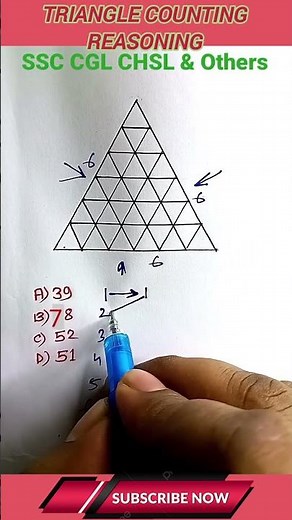 TRIANGLE COUNTING
REASONING
SSC CGL CHSL & Others
6
6
9 6
A) 39
B) 78
C) 52
D) 51
1 → 1
2
3
4
5
SUBSCRIBE NOW